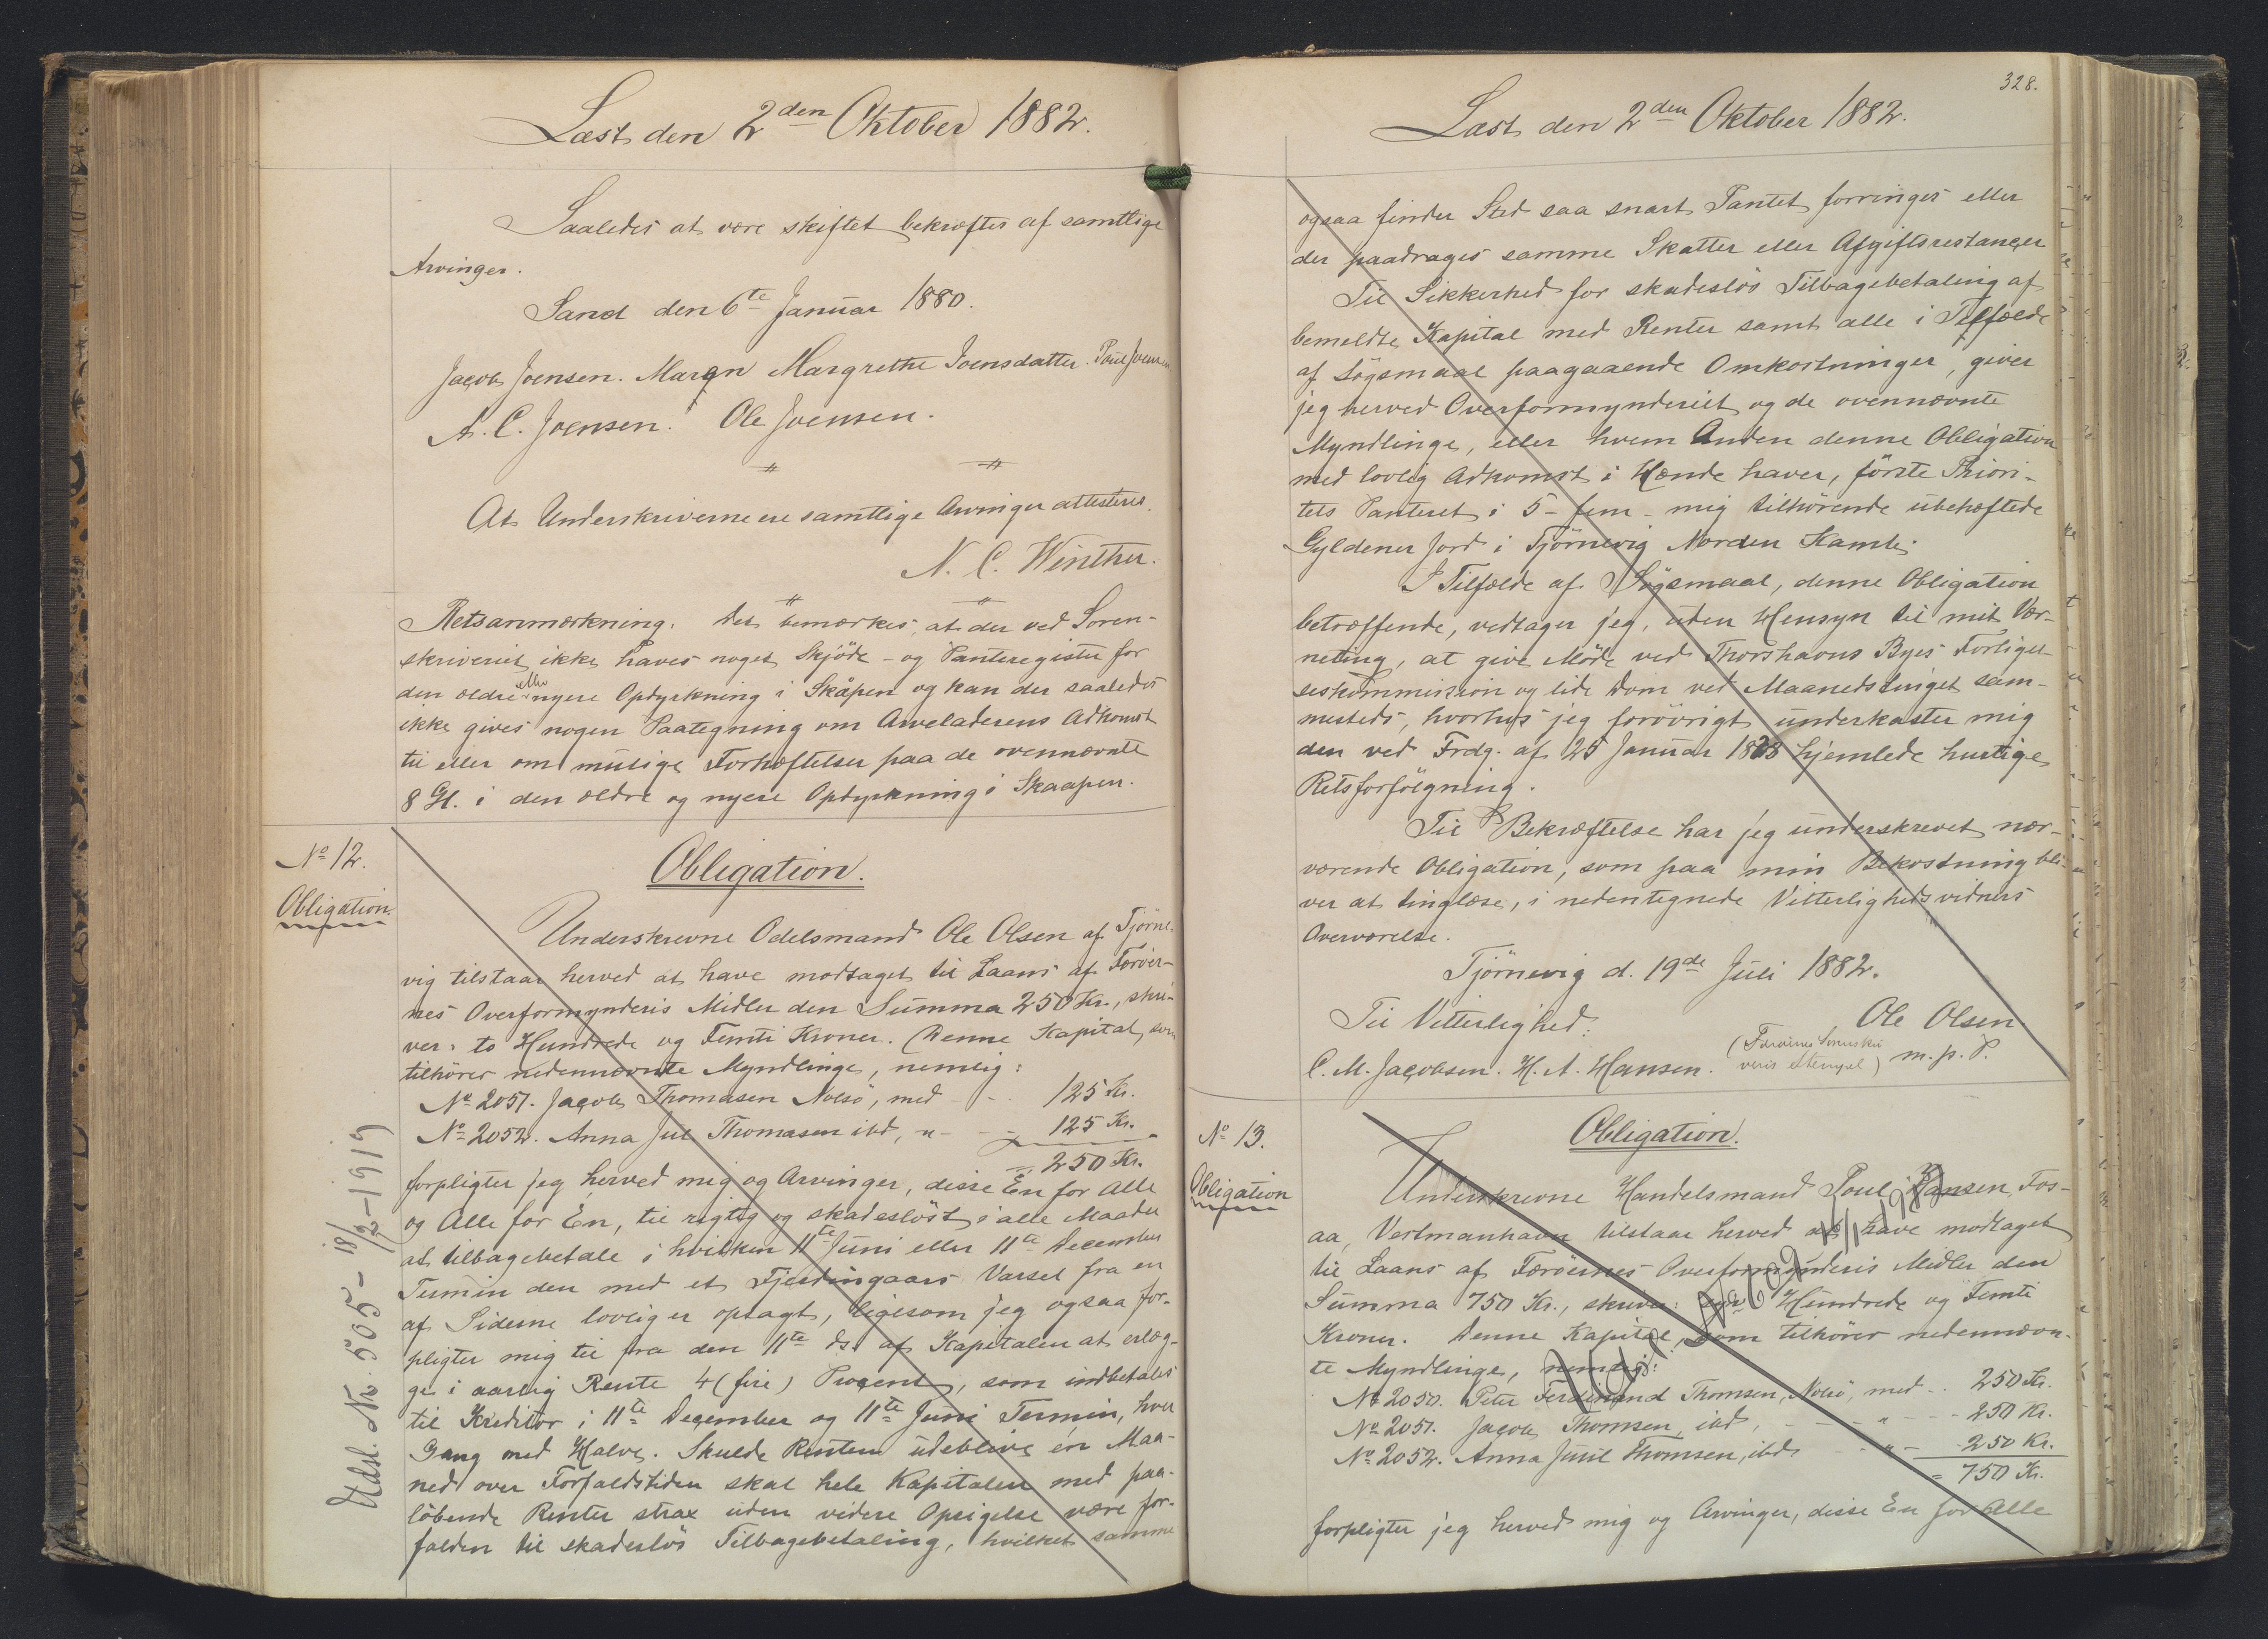 Læst den 2den Oktober 1882.
Saaledes at være skiftet bekræftes af samtlige
Arvinger.
Sand den 6te Januar 1880.
Jacob Joensen. Maren Margrethe Joensdatter. Poul Joensen
A. C. Joensen. Ole Joensen.
At Underskriverne ere samtlige Arvinger attesteres.
N. C. Winther.
Retsanmærkning. Det bemærkes, at der ved Soren-
skriveriet ikke haves noget Skjöde- og Panteregister for
den ældre eller nyere Opdyrkning i Skåpen og kan der saaledes
ikke gives nogen Paategning om Arveladerens Adkomst
til eller om mulige Forhæftelser paa de ovennævnte
8 Gl. i den ældre og nyere Opdyrkning i Skaapen.
No 12.
Obligation.
Obligation.
Underskrevne Odelsmand Ole Olsen af Tjörne-
vig tilstaar herved at have modtaget til Laans af Færöer-
nes Overformynderis Midler den Summa 250 Kr., skri-
ver: to Hundrede og Femti Kroner. Denne Kapital, som
tilhörer nedennævnte Myndlinge, nemlig:
No 2051. Jacob Thomasen Nolsö, med - - 125 Kr.
No 2052. Anna Jul Thomasen ibd, " - - 125 Kr.
= 250 Kr.
forpligter jeg herved mig og Arvinger, disse En for Alle
og Alle for En, til rigtig og skadeslöst i alle Maader
at tilbagebetale i hvilken 11te Juni eller 11te December
Termin den med et Fjerdingaars Varsel fra en
af Siderne lovlig er opsagt, ligesom jeg ogsaa for-
pligter mig til fra den 11te ds. af Kapitalen at erlæg-
ge i aarlig Rente 4 (fire) Procent, som indbetales
til Kreditor i 11te December og 11te Juni Termin, hver
Gang med Halve. Skulde Renten udeblive én Maa-
ned over Forfaldstiden skal hele Kapitalen med paa-
löbende Renter strax uden videre Opsigelse være for-
falden til skadeslös Tilbagebetaling, hvilket samme
Udsl. Nr. 505 - 18/2 - 1919
328.
Læst den 2den Oktober 1882.
ogsaa finder Sted saa snart Pantet forringes eller
der paadrages samme Skatter eller Afgiftsrestancer
Til Sikkerhed for skadeslös Tilbagebetaling af
bemeldte Kapital med Renter samt alle i Tilfælde
af Sögsmaal paagaaende Omkostninger, giver
jeg herved Overformynderiet og de ovennævnte
Myndlinge, eller hvem Anden denne Obligation
med lovlig Adkomst i Hænde haver, förste Priori-
tets Panteret i 5 - fem - mig tilhörende ubehæftede
Gyldener Jord i Tjörnevig Norden Kamb.
I Tilfælde af Sögsmaal, denne Obligation
betræffende, vedtager jeg, uden Hensyn til mit Vær-
neting, at give Möde ved Thorshavns Byes Forligel-
seskommission og lide Dom ved Maanedstinget sam-
mesteds, hvorhos jeg forövrigt underkaster mig
den ved Frdg. af 25 Januar 1828 hjemlede hurtige
Retsforfölgning.
Til Bekræftelse har jeg underskrevet nær-
værende Obligation, som paa min Bekostning bli-
ver at tinglæse, i nedentegnede Vitterlighedsvidners
Overværelse.
Tjörnevig d. 19de Juli 1882.
Til Vitterlighed: Ole Olsen
C. M. Jacobsen. H. A. Hansen. (Færöernes Sorenskri-
veris Stempel) m. p. P.
No 13.
Obligation
Obligation.
Underskrevne Handelsmand Poul Hansen, Fos-
aa, Vestmanhavn tilstaar herved at have modtaget
til Laans af Færöernes Overformynderis Midler den
Summa 750 Kr., skriver: syv Hundrede og Femti
Kroner. Denne Kapital, som tilhörer nedennævn-
te Myndlinge, nemlig:
No 2050. Peter Ferdinand Thomsen, Nolsö, med - 250 Kr.
No 2051. Jacob Thomsen, ibd, - - - " - - 250 Kr.
No 2052. Anna Juul Thomsen, ibd - - " - 250 Kr.
= 750 Kr.
forpligter jeg herved mig og Arvinger, disse En for Alle